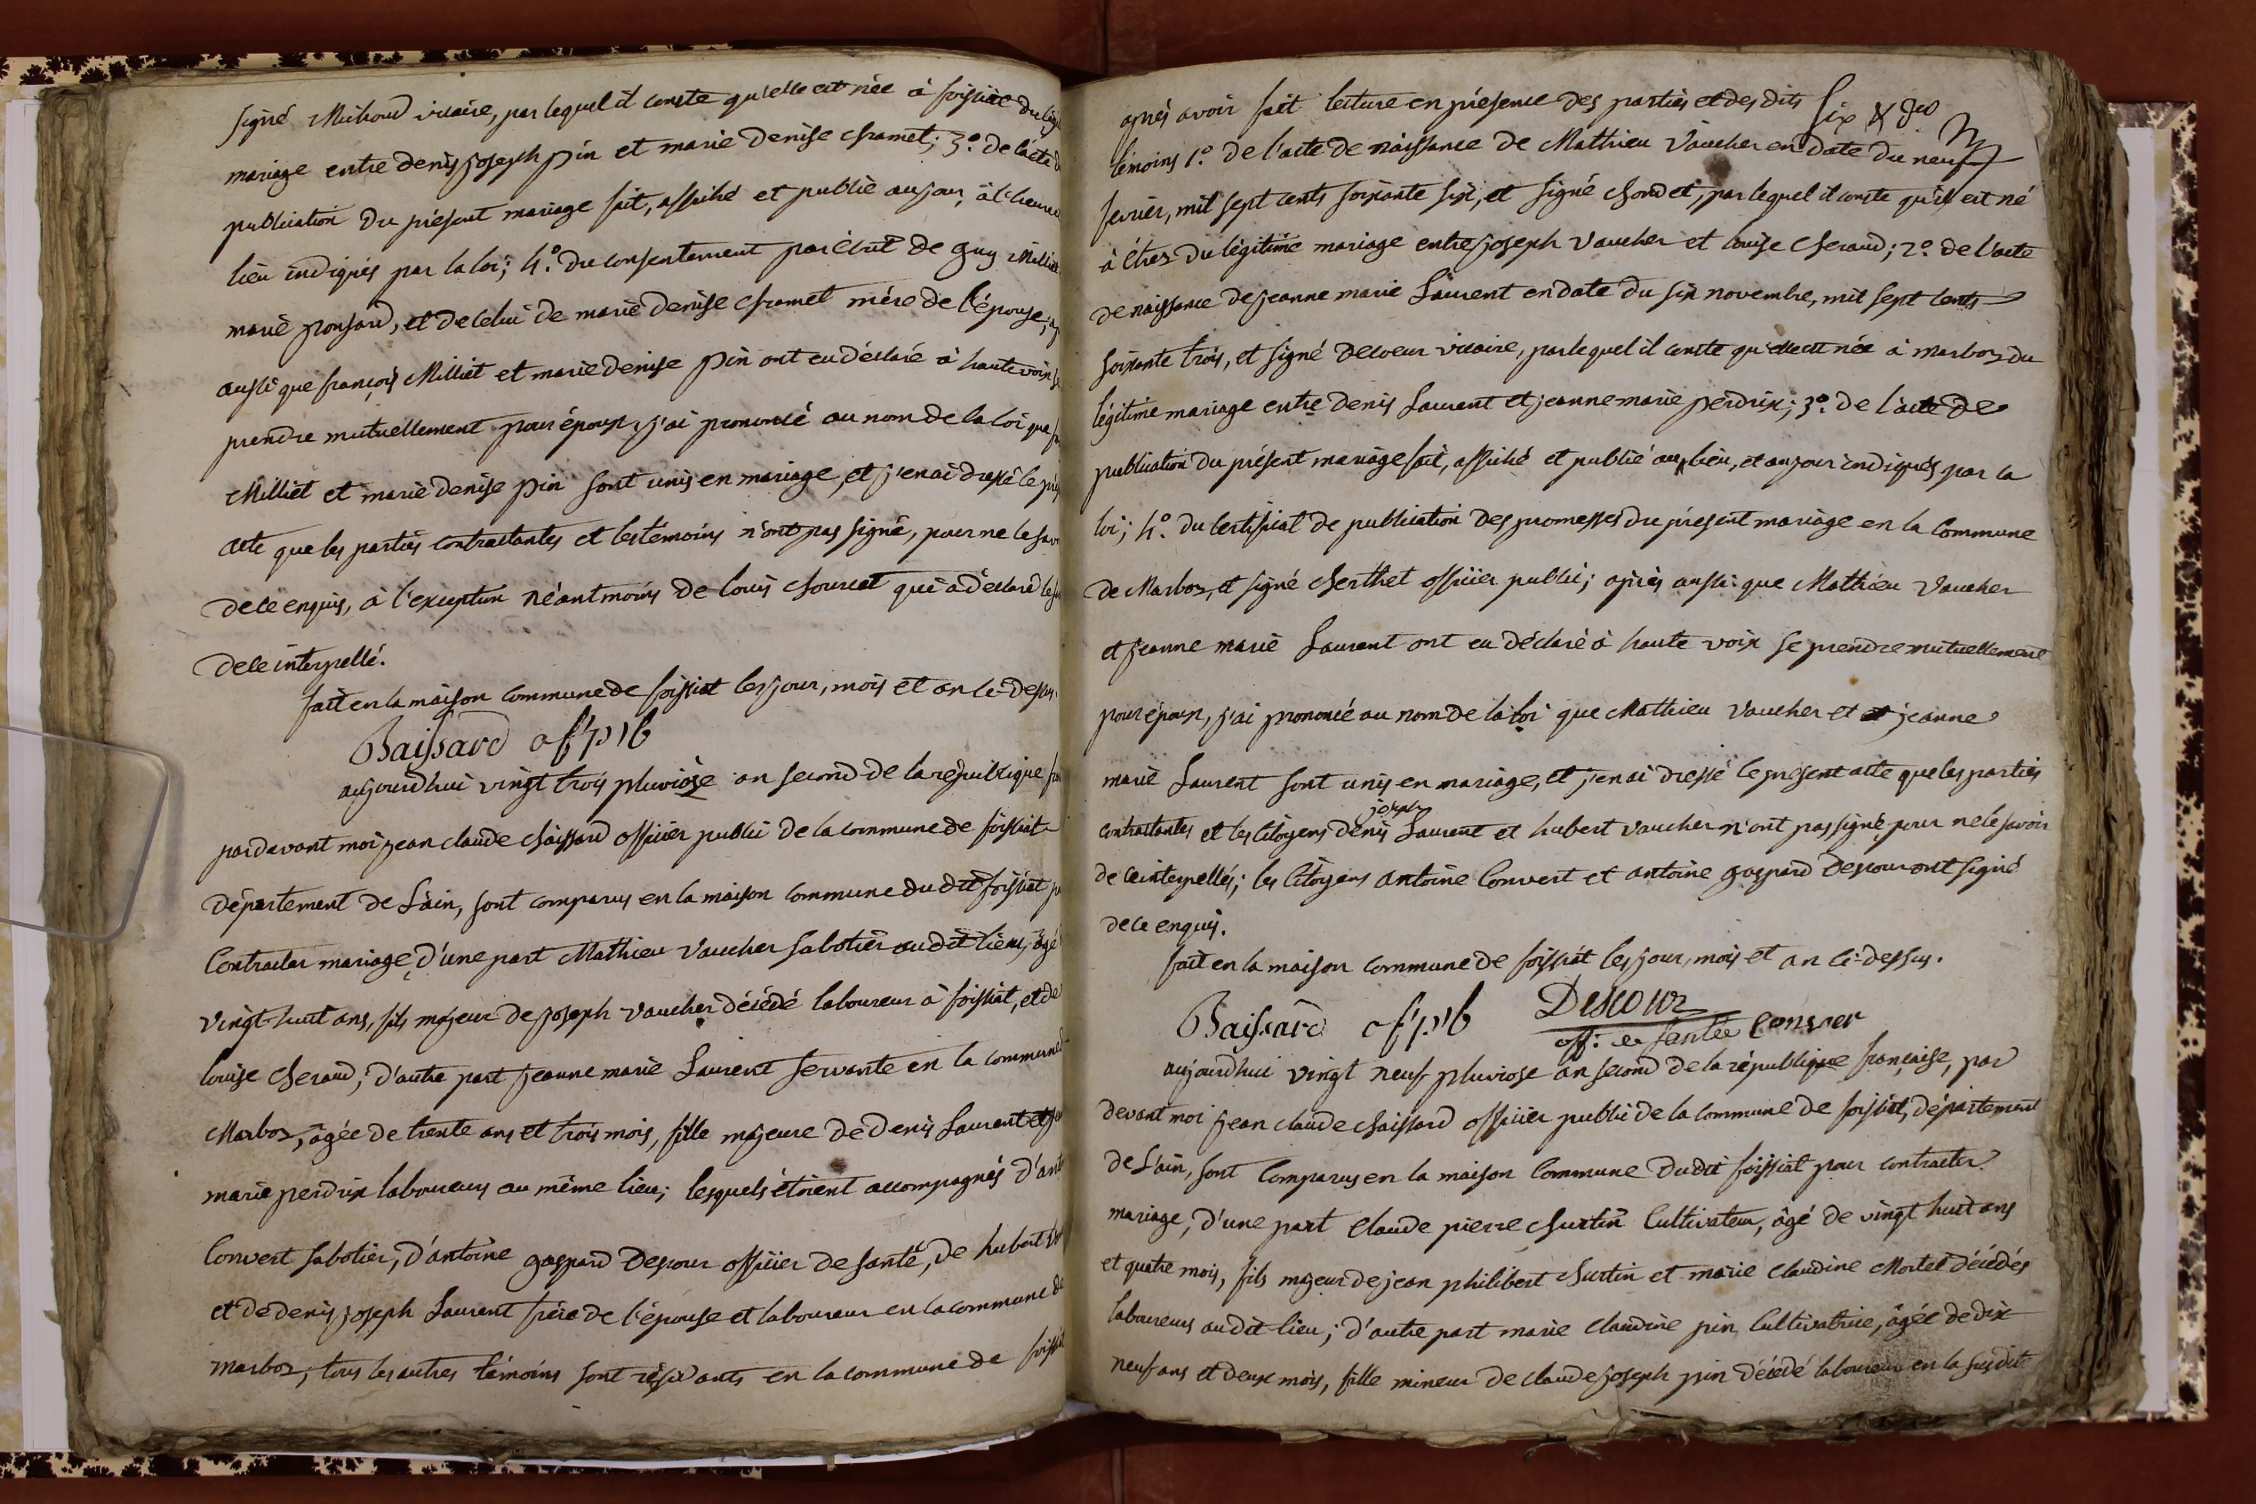 signé Michoud vicaire, par lequel il conste qu'elle est née à foissiat du légi
mariage entre denis joseph pin et marie denise chamel; 3.º de l'acte d
publication du présent mariage fait, affiché et publié au jour, à l'heure
lieu indiqués par la loi; 4.º du consentement par écrit de guy Milliet
marie ponsard, et de celui de marie denise chamel mére de l'épouse;
aussi que françois Milliet et marie denise pin ont eu déclaré à haute voix
prendre mutuellement pour époux, j'ai prononcé au nom de la loi que
Milliet et marie denise pin sont unis en mariage, et j'en ai dressé le pré
acte que les parties contractantes et les témoins n'ont pas signé, pour ne le sav
de ce enquis, à l'exception néantmoins de louis qui a déclaré le
de ce interpellé.
fait en la maison commune de foissiat les jour, mois et an ci-dessus.
Baissard of pub
aujourdhui vingt trois pluviose an second de la république
pardevant moi jean claude Baissard officier public de la commune de foissiat
département de L'ain, sont comparus en la maison commune du dit foissiat
Contracter mariage, d'une part Mathieu Vaucher sabotier au dit lieu, âgé
vingt-huit ans, fils majeur de joseph Vaucher décédé laboureur à foissiat, et de
louise Beraud; d'autre part jeanne marie Laurent servante en la commune
Marboz, âgée de trente ans et trois mois, fille majeure de denis Laurent et
marie perdrix laboureurs au même lieu; lesquels étoient accompagnés d'
Convert sabotier, d'antoine gaspard Descour officier de santé, de hubert
et de denis joseph Laurent frère de l'épouse et laboureur en la commune de
marboz; tous les autres témoins sont résidants en la commune de
six
après avoir fait lecture en présence des parties et des dits
témoins 1.º de l'acte de naissance de Mathieu Vaucher en date du neuf
fevrier, mil sept cents soixante six, et signé, par lequel il conste qu'il est né
à étrez du légitime mariage entre joseph Vaucher et louise Beraud; 2.º de l'acte
de naissance de jeanne marie Laurent en date du six novembre, mil sept cents
soixante trois, et signé Decoeur vicaire, par lequel il conste qu'elle est née à marboz du
légitime mariage entre denis Laurent et jeanne marie perdrix; 3.º de l'acte de
publication du présent mariage fait, affiché et publié au lieu, et au jour indiqués par la
loi; 4.º du certificat de publication des promesses du présent mariage en la Commune
de Marboz, et signé Berthet officier public; après aussi que Mathieu Vaucher
et jeanne marie Laurent ont eu déclaré à haute voix se prendre mutuellement
pour époux, j'ai prononcé au nom de la loi que Mathieu Vaucher et jeanne
marie Laurent sont unis en mariage, et j'en ai dressé le présent acte que les parties
joseph
contractantes et les Citoyens denis Laurent et hubert Vaucher n'ont pas signé pour ne le savoir
de ce interpellés; les Citoyens antoine Convert et antoine gaspard Descour ont signé
de ce enquis.
fait en la maison commune de foissiat les jour, mois et an ci-dessus.
Baissard of pub Descour
off. de santée Conver
aujourdhui vingt neuf pluviose an second de la république française, par
devant moi jean claude Baissard officier public de la commune de foissiat, département
de L'ain, sont Comparus en la maison Commune du dit foissiat pour contracter
mariage, d'une part Claude pierre Burtin Cultivateur, âgé de vingt huit ans
et quatre mois, fils majeur de jean philibert Burtin et marie Claudine Mortel décédés
laboureurs au dit lieu; d'autre part marie Claudine pin, Cultivatrice, âgée de dix
neuf ans et deux mois, fille mineur de claude joseph pin décédé laboureur en la susdite